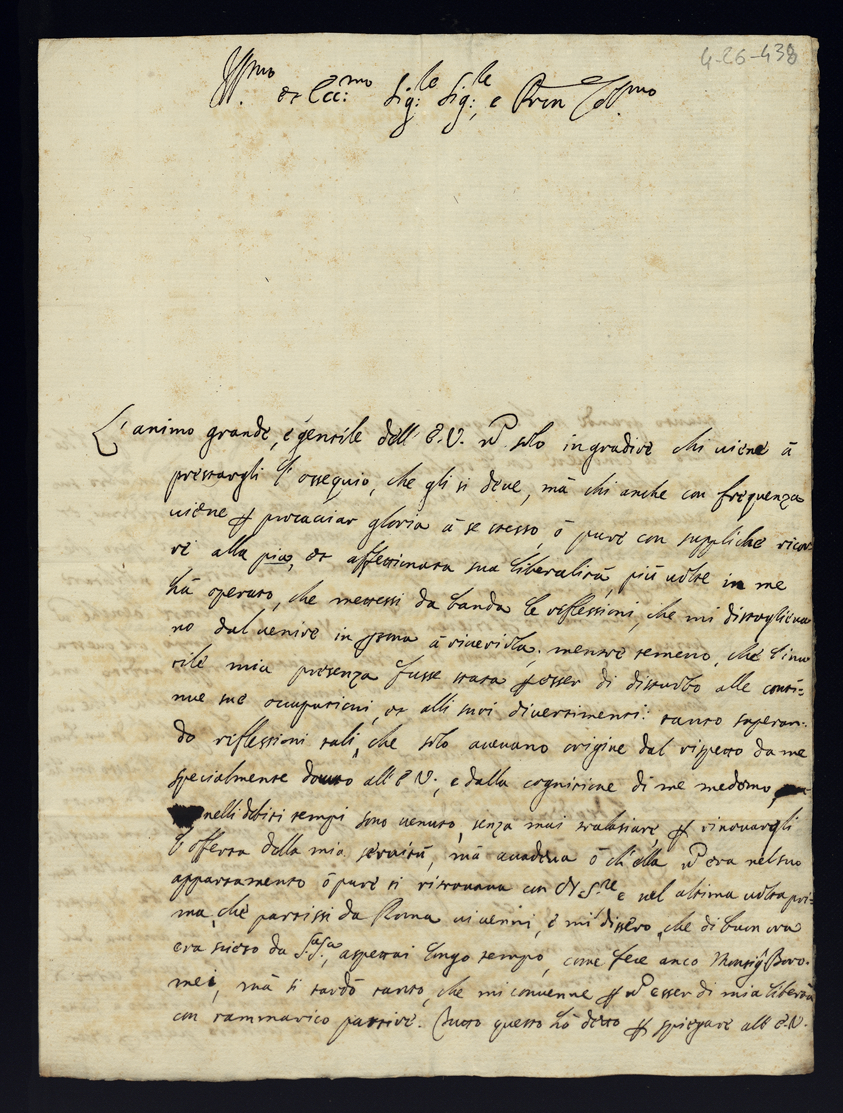 4-26-438
Ill.mo et Ecc.mo Sig.re Sig.re, e Pron Col.mo
L'animo grande, e gentile dell'E.V. nõ solo in gradire chi viene à
prestargli l'ossequio, che gli si deve, mà chi anche con frequenza
viene ꝑ procacciar gloria à se stesso, ò pure con suppliche ricor-
re alla pia, et affettionata sua liberalità, più volte in me
hà operato, che mettessi da banda le riflessioni, che mi distoglieva
no dal venire in ꝑsona à riverirla; mentre temevo, che l'inu
tile mia presenza fusse stata ꝑ esser di disturbo alle conti=
nue sue occupationi, et alli suoi divertimenti: tanto superan-
do riflessioni tali, che solo avevano origine dal rispetto da me
specialmente dovuto all'E.V., e dalla cognitione di me medemo,
nelli debiti tempi sono venuto, senza mai tralasciare ꝑ rinovargli
l'offerta della mia servitù, mà accadeva ò ch'ella nõ era nel suo
appartamento ò pure si ritrovava con N. S.re e nel ultima volta pri=
ma, che partissi da Roma vi venni, e mi dissero, che di buon ora
era sceso da S.Sa, aspettai lungo tempo, come fece anco Monsig.r Boro-
mei, mà si tardò tanto, che mi convenne ꝑ nõ esser di mia libertà
con rammarico partire. Tutto questo hò detto ꝑ spiegare all'E.V.